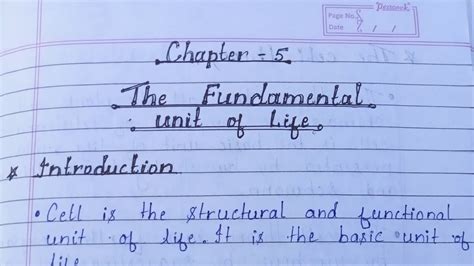 Peacock
Page No.
Date / /
Chapter - 5
The Fundamental
unit of Life
* Introduction
• Cell is the structural and functional
unit of life. It is the basic unit of
life